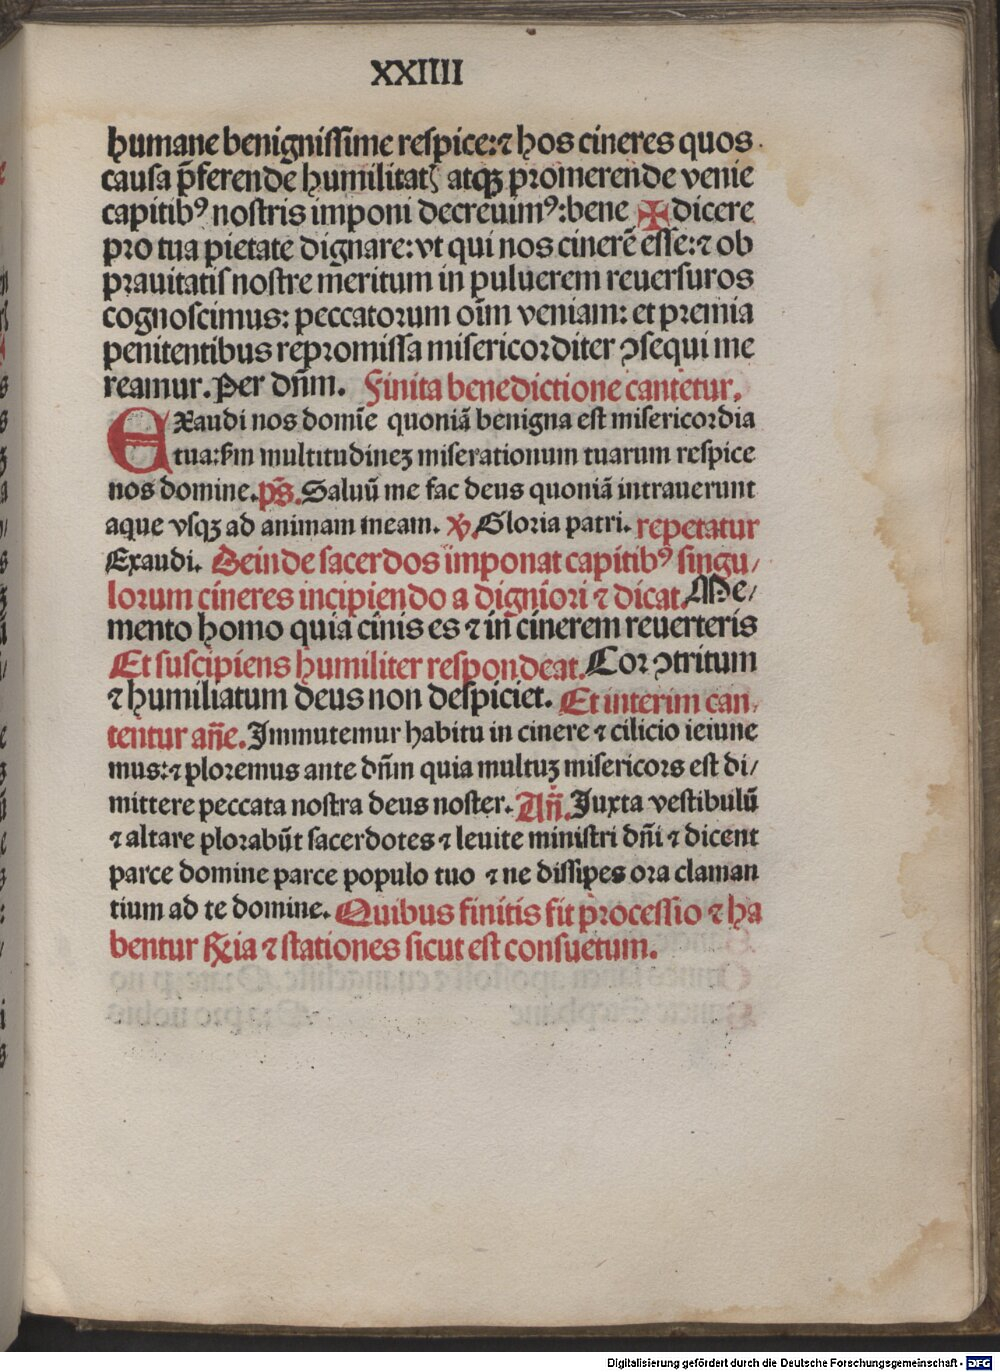 XXIIII
humane benignissime respice:⁊ hos cineres quos
causa p̄ferende humilitatꝭ atqꝫ promerende venie
capitibꝰ nostris imponi decreuimꝰ:bene ✠ dicere
pro tua pietate dignare:vt qui nos cinerē esse:⁊ ob
prauitatis nostre meritum in puluerem reuersuros
cognoscimus: peccatorum oīm veniam: et premia
penitentibus repromissa misericorditer ꝯsequi me
reamur. Per dn̄m. Finita benedictione cantetur.
EXaudi nos domīe quoniā benigna est misericordia
tua:ẜm multitudineꝫ miserationum tuarum respice
nos domine. ps̄. Saluū me fac deus quoniā intrauerunt
aque vsqꝫ ad animam meam. ℣. Gloria patri. repetatur
Exaudi. Deinde sacerdos imponat capitibꝰ singu/
lorum cineres incipiendo a digniori ⁊ dicat. Me/
mento homo quia cinis es ⁊ in cinerem reuerteris
Et suscipiens humiliter respondeat. Cor ꝯtritum
⁊ humiliatum deus non despiciet. Et interim can/
tentur an̄e. Immutemur habitu in cinere ⁊ cilicio ieiune
mus:⁊ ploremus ante dn̄m quia multuꝫ misericors est di/
mittere peccata nostra deus noster. An̄. Juxta vestibulū
⁊ altare plorabūt sacerdotes ⁊ leuite ministri dn̄i ⁊ dicent
parce domine parce populo tuo ⁊ ne dissipes ora claman
tium ad te domine. Quibus finitis fit processio ⁊ ha
bentur R̃ia ⁊ stationes sicut est consuetum.
Digitalisierung gefördert durch die Deutsche Forschungsgemeinschaft - DFG